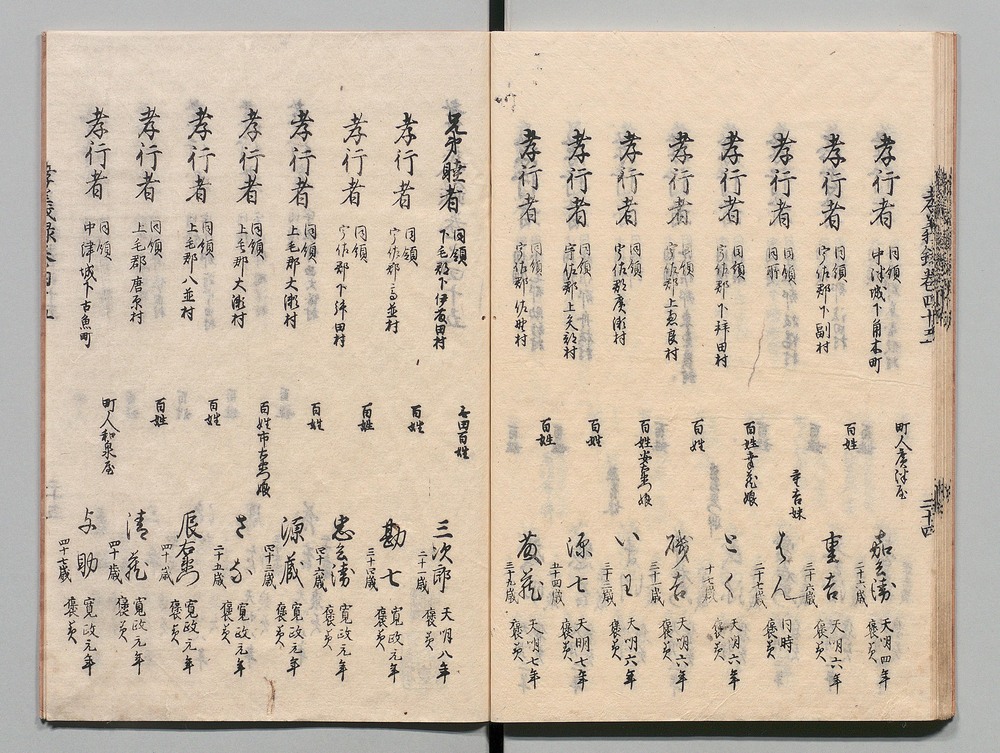 孝義録巻四十五
二十四
孝行者 同領 中津城下角木町 町人廣津屋 茄兵衛 二十六歳 天明四年 褒美
孝行者 同領 宇佐郡下副村 百姓 重吉 三十六歳 天明六年 褒美
孝行者 同領 同所 幸吉妹 はん 二十七歳 同時 褒美
孝行者 同領 宇佐郡下拝田村 百姓 娘 とく 十七歳 天明六年 褒美
孝行者 同領 宇佐郡上恵良村 百姓 磯吉 三十一歳 天明六年 褒美
孝行者 同領 宇佐郡廣瀬村 百姓 娘 いわ 三十二歳 天明六年 褒美
孝行者 同領 宇佐郡上矢部村 百姓 源七 五十四歳 天明七年 褒美
孝行者 同領 宇佐郡佐野村 百姓 三十九歳 天明七年 褒美
兄弟睦者 同領 下毛郡下伊藤田村 百姓 三次郎 二十一歳 天明八年 褒美
孝行者 同領 宇佐郡高並村 百姓 勘七 三十四歳 寛政元年 褒美
孝行者 同領 宇佐郡下拝田村 百姓 忠兵衛 四十六歳 寛政元年 褒美
孝行者 同領 上毛郡大瀬村 百姓 源蔵 四十三歳 寛政元年 褒美
孝行者 同領 上毛郡大瀬村 百姓市右衛門娘 さな 二十五歳 寛政元年 褒美
孝行者 同領 上毛郡八並村 百姓 辰右衛門 四十歳 寛政元年 褒美
孝行者 同領 上毛郡唐原村 百姓 清蔵 四十歳 寛政元年 褒美
孝行者 同領 中津城下古魚町 町人和泉屋 与助 四十七歳 寛政元年 褒美